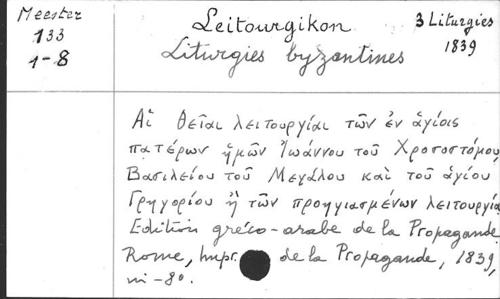 Meester
133
1-8
Leitourgikon
Liturgies byzantines
3 Liturgies
1839
Αἱ θεῖαι λειτουργίαι τῶν ἐν ἁγίοις
πατέρων ἡμῶν Ἰωάννου τοῦ Χροσοστόμου,
Βασιλείου τοῦ Μεγάλου καὶ τοῦ ἁγίου
Γρηγορίου ἢ τῶν προηγιασμένων λειτουργία
Edition gréco-arabe de la Propagande.
Rome, Impr. de la Propagande, 1839,
in-8º.